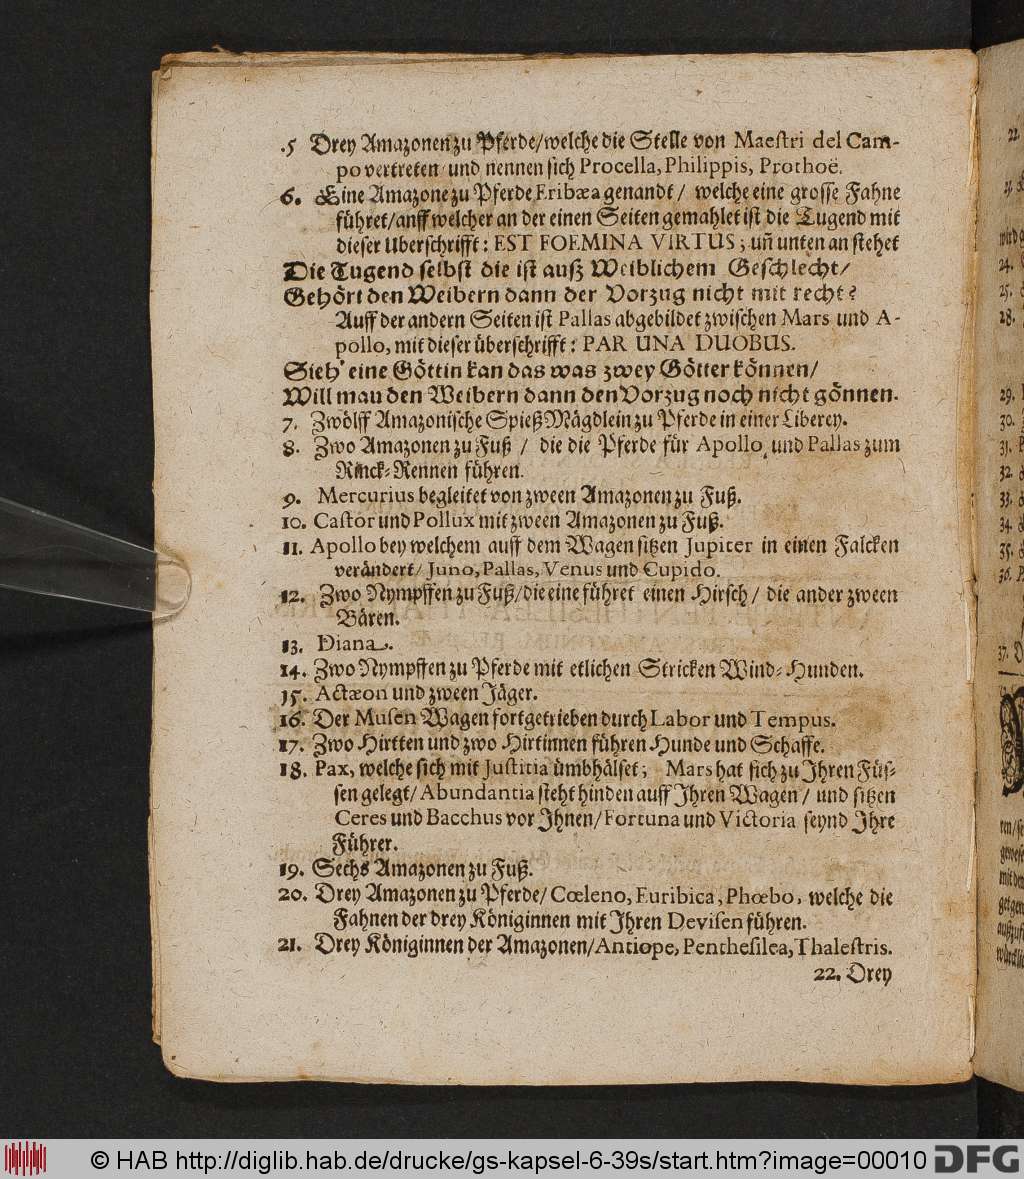 .5 Drey Amazonen zu Pferde/welche die Stelle von Maeſtri del Cam-
po vertreten und nennen ſich Procella, Philippis, Prothoë.
6. Eine Amazone zu Pferde Eribæa genandt/ welche eine groſſe Fahne
führet/anff welcher an der einen Seiten gemahlet iſt die Tugend mit
dieſer Uberſchrifft: EST FOEMINA VIRTUS; uñ unten an ſtehet
Die Tugend ſelbſt die iſt auß Weiblichem Geſchlecht/
Gehört den Weibern dann der Vorzug nicht mit recht?
Auff der andern Seiten iſt Pallas abgebildet zwiſchen Mars und A-
pollo, mit dieſer überſchrifft: PAR UNA DUOBUS.
Sieh' eine Göttin kan das was zwey Götter können/
Will mau den Weibern dann den Vorzug noch nicht gönnen.
7. Zwölff Amazoniſche Spieß Mägdlein zu Pferde in einer Liberey.
8. Zwo Amazonen zu Fuß / die die Pferde für Apollo, und Pallas zum
Rinck-Rennen führen.
9. Mercurius begleitet von zween Amazonen zu Fuß.
10. Caſtor und Pollux mit zween Amazonen zu Fuß.
11. Apollo bey welchem auff dem Wagen ſitzen Jupiter in einen Falcken
verändert/ Juno, Pallas, Venus und Cupido.
12. Zwo Nympffen zu Fuß/die eine führet einen Hirſch/ die ander zween
Bären.
13. Diana.
14. Zwo Nympffen zu Pferde mit etlichen Stricken Wind-Hunden.
15. Actæon und zween Jäger.
16. Der Muſen Wagen fortgetrieben durch Labor und Tempus.
17. Zwo Hirtten und zwo Hirtinnen führen Hunde und Schaffe.
18. Pax, welche ſich mit Juſtitia ümbhälſet; Mars hat ſich zu Ihren Füſ-
ſen gelegt/ Abundantia ſteht hinden auff Ihren Wagen/ und ſitzen
Ceres und Bacchus vor Ihnen/ Fortuna und Victoria ſeynd Ihre
Führer.
19. Sechs Amazonen zu Fuß.
20. Drey Amazonen zu Pferde/ Cœleno, Euribica, Phœbo, welche die
Fahnen der drey Königinnen mit Ihren Deviſen führen.
21. Drey Königinnen der Amazonen/Antiope, Pentheſilea, Thaleſtris.
22. Drey
22.
24.
25.
28.
29.
30.
31.
32.
33.
34.
35.
36.
37.
© HAB http://diglib.hab.de/drucke/gs-kapsel-6-39s/start.htm?image=00010
DFG